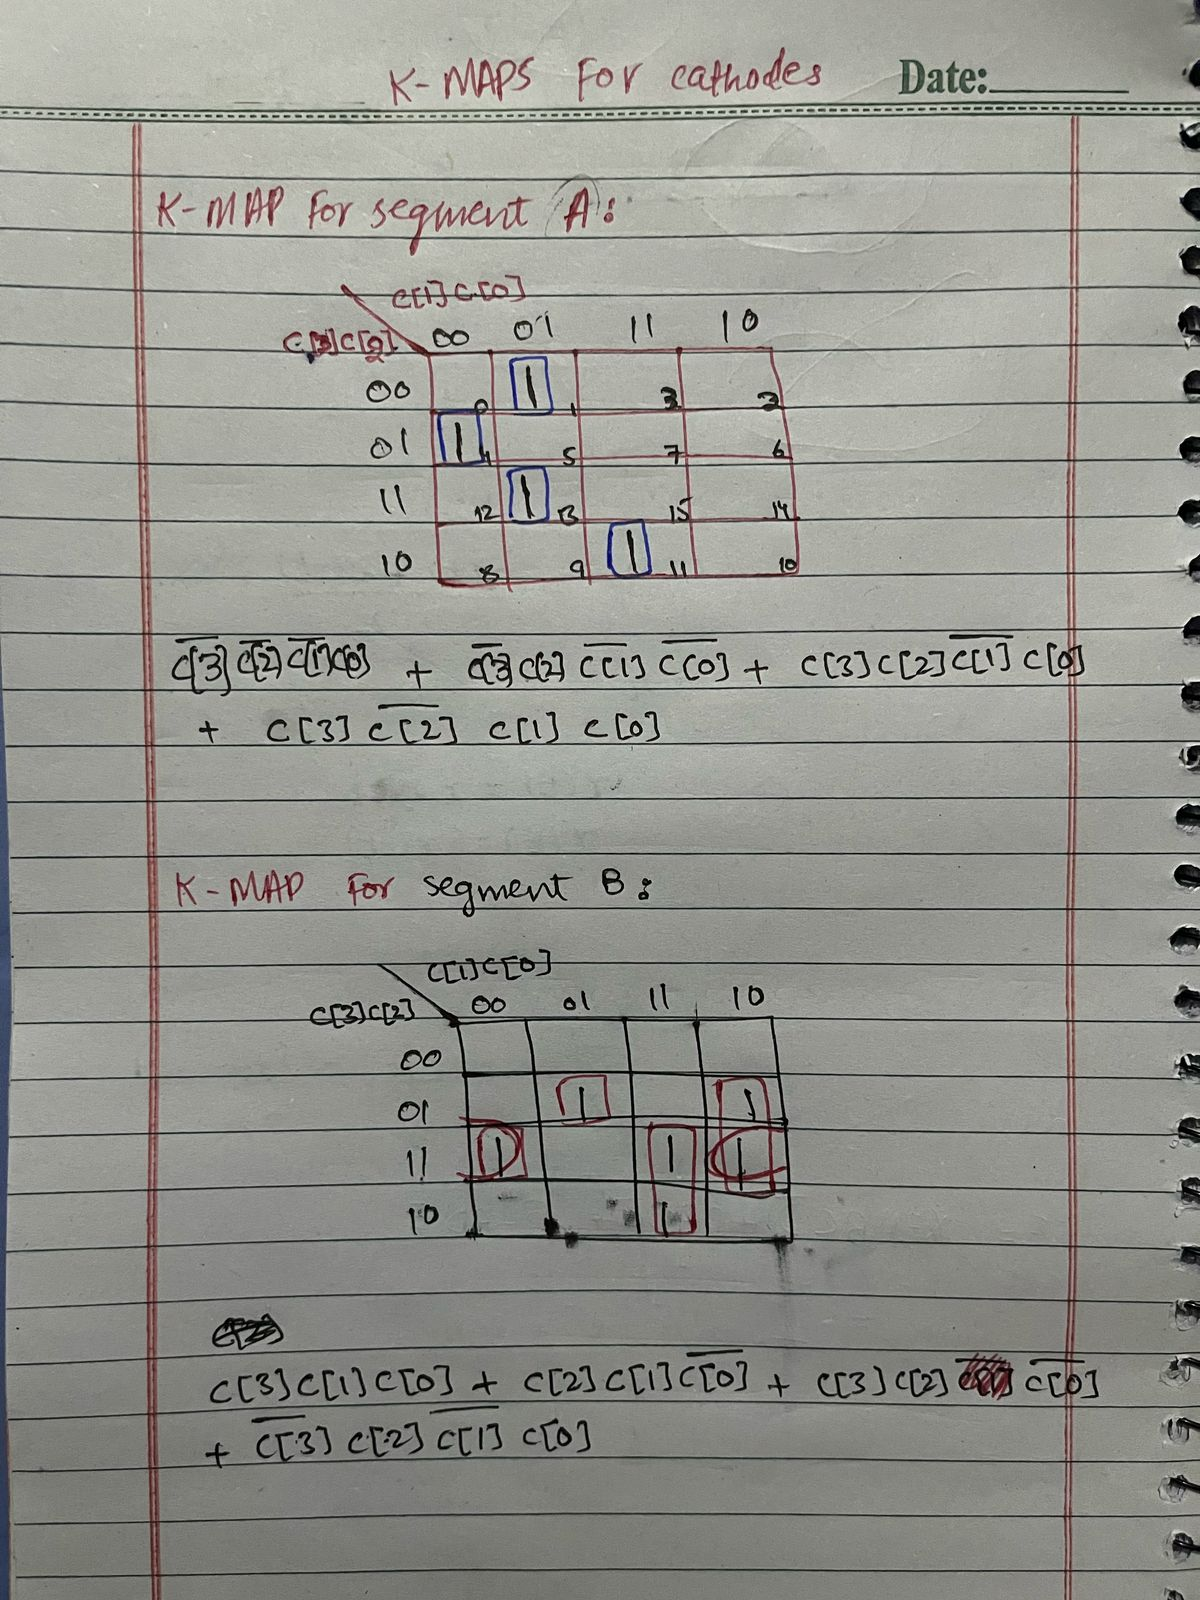 K-MAPS For cathodes Date:
K-MAP For segment A:
C[1] C[0]
C[3]C[2] 00 01 11 10
00 0 1 1 3 2
01 1 4 5 7 6
11 12 1 13 15 14
10 8 9 1 11 10
C̅[̅3̅]̅ C̅[̅2̅]̅ C̅[̅1̅]̅ C[0] + C̅[̅3̅]̅ C[2] C̅[̅1̅]̅ C̅[̅0̅]̅ + C[3] C[2] C̅[̅1̅]̅ C[0]
+ C[3] C̅[̅2̅]̅ C[1] C[0]
K-MAP For segment B:
C[1]C[0]
C[3]C[2] 00 01 11 10
00
01 1 1
11 1 1 1
10 1
C[3]C[1]C[0] + C[2]C[1]C̅[̅0̅]̅ + C[3]C[2] C̅[̅0̅]̅
+ C̅[̅3̅]̅ C[2] C̅[̅1̅]̅ C[0]